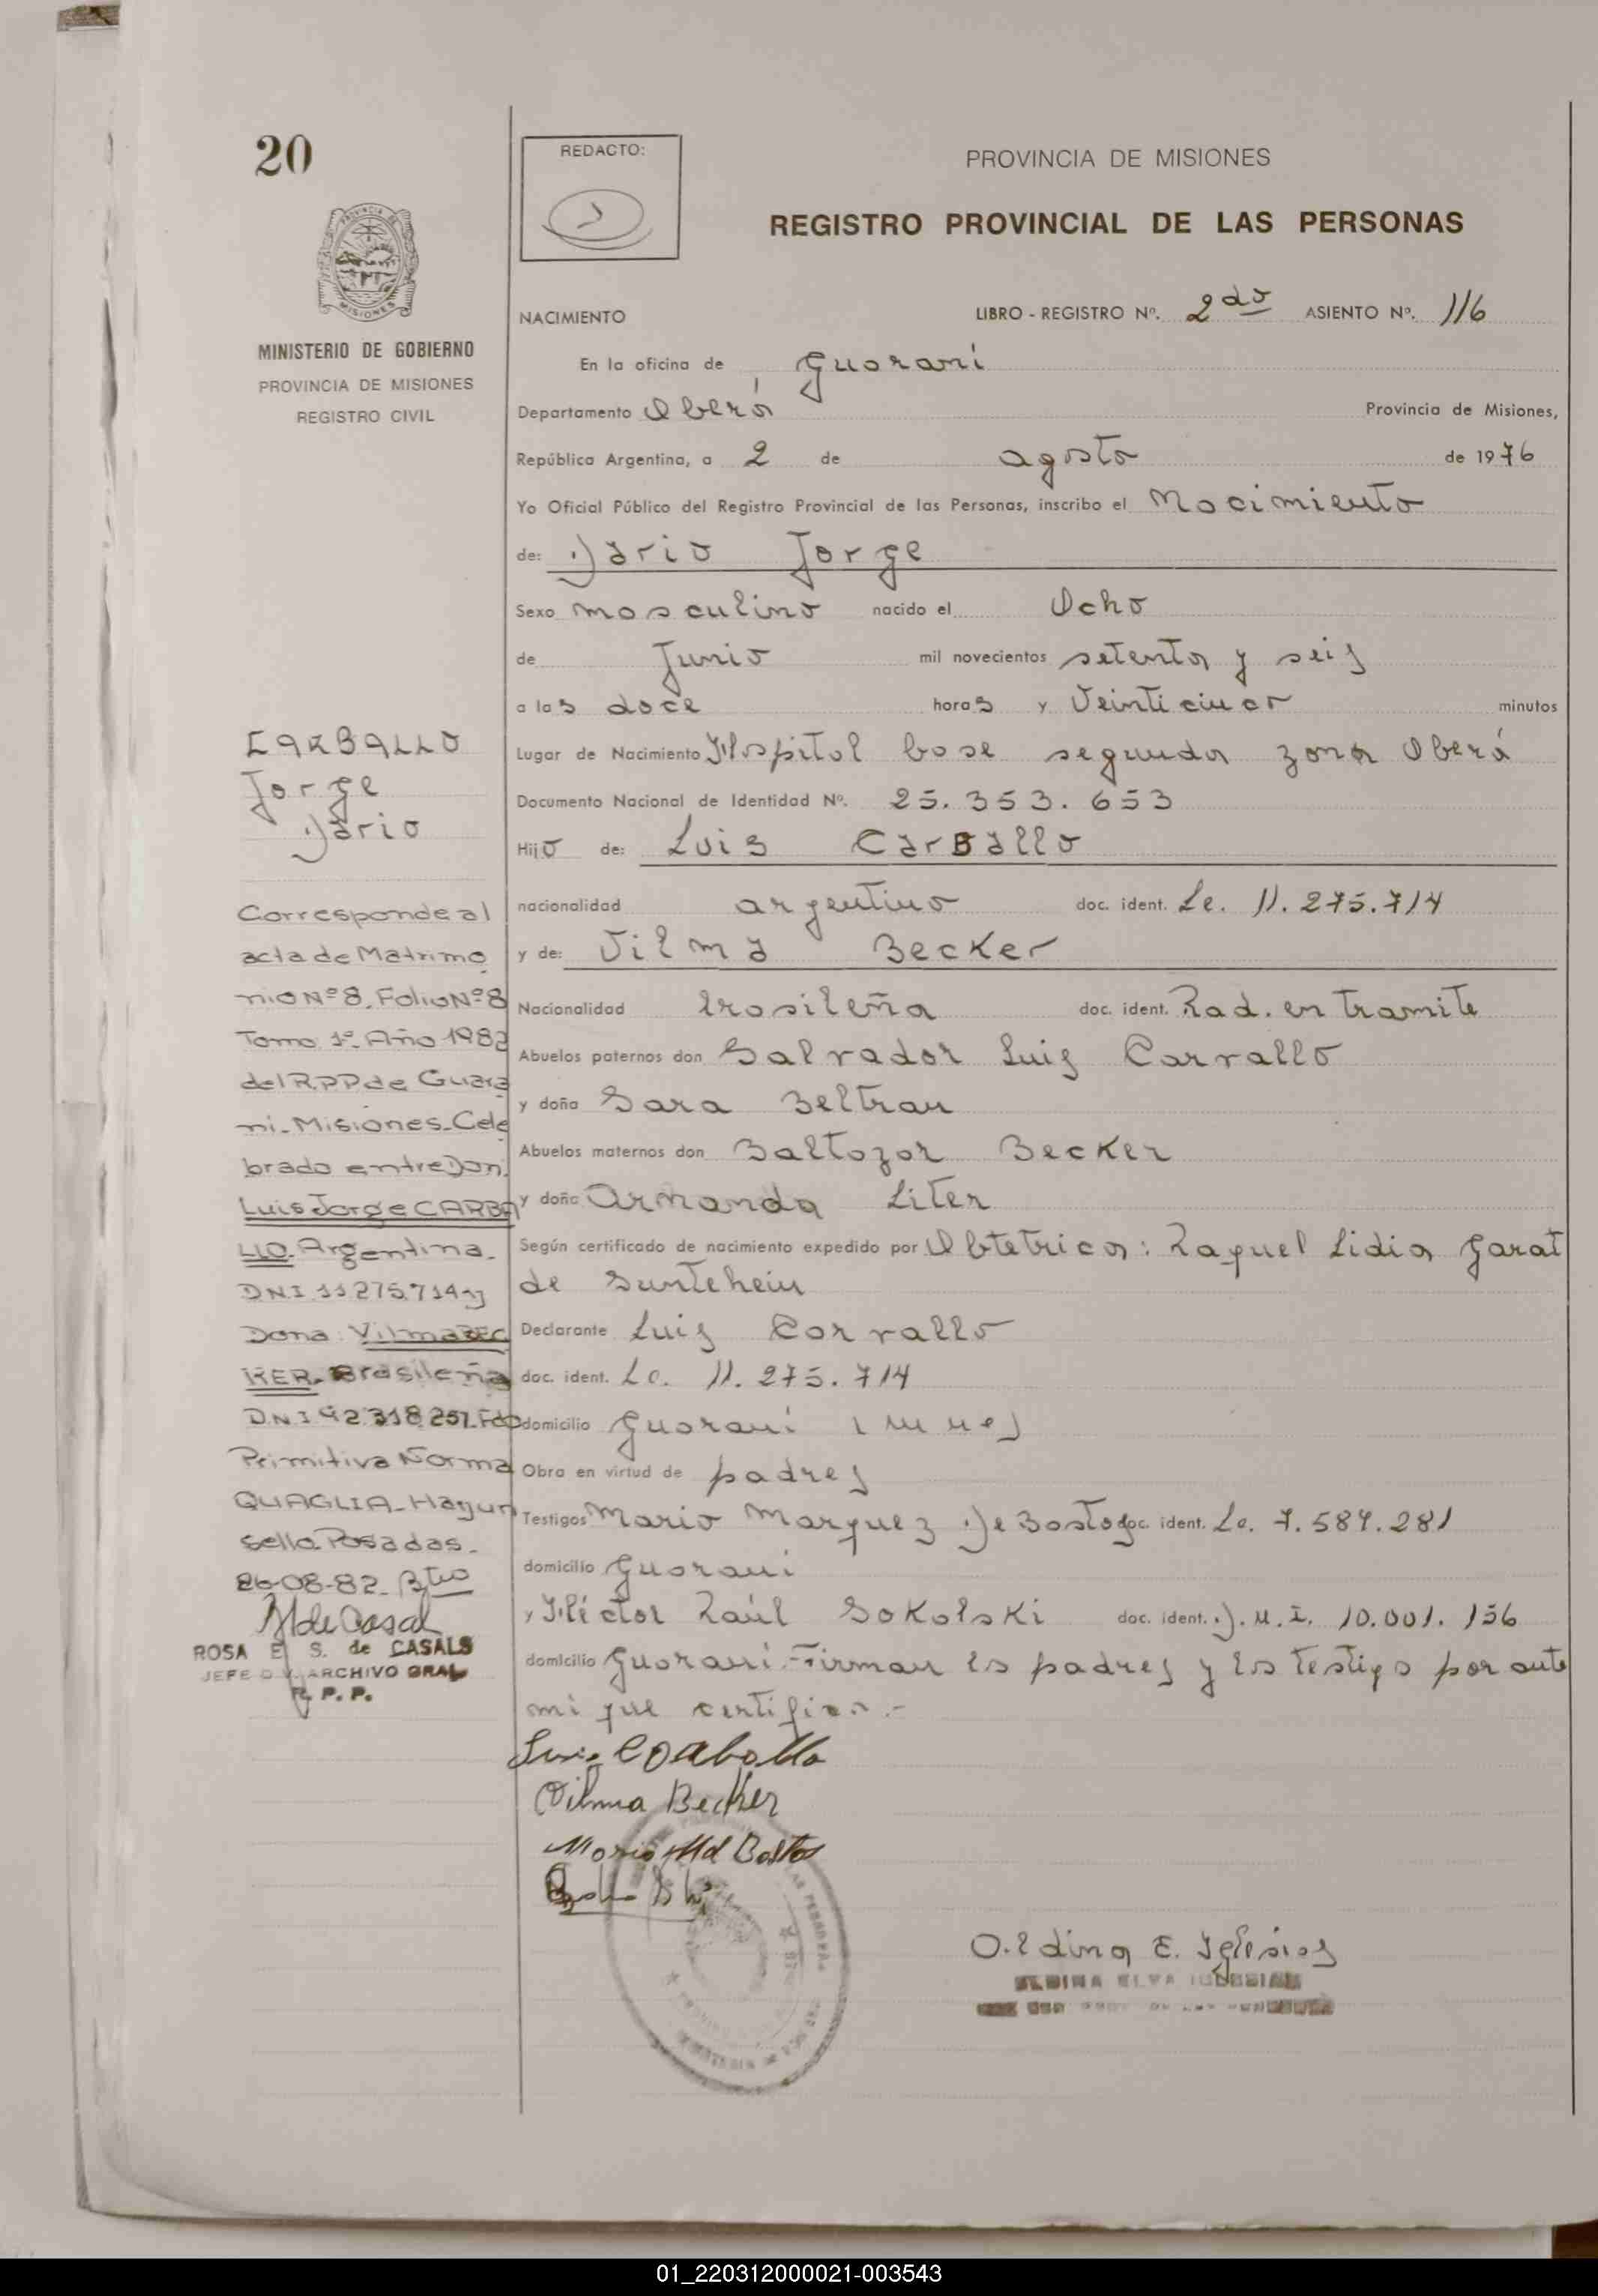 20
REDACTO:
PROVINCIA DE MISIONES
REGISTRO PROVINCIAL DE LAS PERSONAS
MINISTERIO DE GOBIERNO
PROVINCIA DE MISIONES
REGISTRO CIVIL
NACIMIENTO LIBRO - REGISTRO Nº. 2do ASIENTO Nº. 116
En la oficina de Guarani
Departamento Oberá Provincia de Misiones,
República Argentina, a 2 de agosto de 1976
Yo Oficial Público del Registro Provincial de las Personas, inscribo el Nacimiento
de: Dario Jorge
Sexo masculino nacido el Ocho
de Junio mil novecientos setenta y seis
a las doce horas y Veinticinco minutos
Lugar de Nacimiento Hospital base segunda zona Oberá
Documento Nacional de Identidad Nº. 25.353.653
Hijo de: Luis CarBallo
nacionalidad argentino doc. ident. Le. 11.275.714
y de: Vilma Becker
Nacionalidad brasileña doc. ident. Rad. en tramite
Abuelos paternos don Salvador Luis Carvallo
y doña Sara Beltran
Abuelos maternos don Baltazar Becker
y doña Armanda Liter
Según certificado de nacimiento expedido por Obtetrica: Raquel Lidia Garat
de
Declarante Luis Carvallo
doc. ident. Le. 11.275.714
domicilio Guarani
Obra en virtud de padres
Testigos Mario Marquez De Bastos doc. ident. Le. 7.584.281
domicilio Guarani
y Héctor Raúl Sokolski doc. ident. D.N.I. 10.001.156
domicilio Guarani.- Firman los padres y los testigo por ante
mi que certifico.-
Luis Carballo
Vilma Becker
Mario Md Bastos
O. Eldina E. Iglesias
ELDINA ELVA IGLESIAS
CARBALLO
Jorge
Dario
Corresponde al
acta de Matrimo
nio Nº 8. Folio Nº 8
Tomo 1º. Año 1982
del R.P.P de Guara
ni-Misiones-Cele
brado entre Don.
Luis Jorge CARBA
LLO. Argentina.
D.N.I 11.275.714 y
Dona: Vilma BEC
KER. Brasileña
D.N.I 92.318.257. Fdo
Primitiva Norma
QUAGLIA- Hay un
sello. Posadas.
26-08-82.
ROSA E. S. de CASALS
JEFE DIV. ARCHIVO GRAL
R. P. P.
01_220312000021-003543